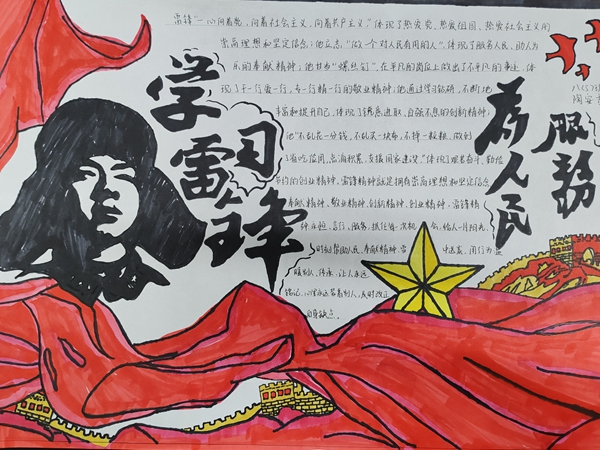 学习
雷锋
为人民
服务
雷锋“一心向着党，向着社会主义，向着共产主义”体现了热爱党、热爱祖国、热爱社会主义的
崇高理想和坚定信念；他立志“做一个对人民有用的人”，体现了服务人民、助人为
乐的奉献精神；他甘当“螺丝钉”，在平凡的岗位上做出了不平凡的事业，体
现了干一行爱一行，专一行精一行的敬业精神；他通过学习钻研，不断地
丰富和提升自己，体现了锐意进取、自强不息的创新精神；
他“不乱花一分钱，不乱买一块布，不掉一粒粮，做到
省吃俭用，点滴积累，支援国家建设”体现了艰苦奋斗、勤俭
节约的创业精神。雷锋精神就是拥有崇高理想和坚定信念
奉献精神、敬业精神、创新精神、创业精神。雷锋精
时刻帮助人民
暖别人
让人永远
铭记。心里永远装着别人，及时改正
自身缺点。